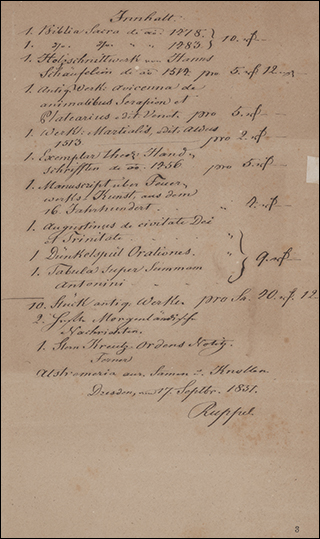 Innhalt.
1. Biblia Sacra de ao 1478.
1. " " " 1483. } 10. rf
1. Holzschnittwerk von Hanns
Schaufelin de ao 1517. pro 5. rf 12.
1. Antiq. Werk: Avicenna de
animalibus Serapion et
Platearius edit: Venet. pro 5. rf
1. Werk: Martialis, edit. Aldus
1513 pro 2. rf
1. Exemplar theol: Hand-
schrifften de ao 1456. pro 5. rf
1. Manuscript über Feuer-
werks Kunst, aus dem
16 Jahrhundert.
1. Augustinus de civitate Dei
et Trinitate "
1 Dünkelspuil Orationes. "
1. Tabula super Summam
Antonini " } 9. rf
10. Stück antiq. Werke. pro Sa. 20. rf. 12.
2. Hefte Morgenländische
Nachrichten.
1. Stern Kreutz-Ordens Notiz.
Ferner
Alstromeria aus Samen u. Knollen
Dresden, am 17. Septbr. 1831.
Ruppel.
3